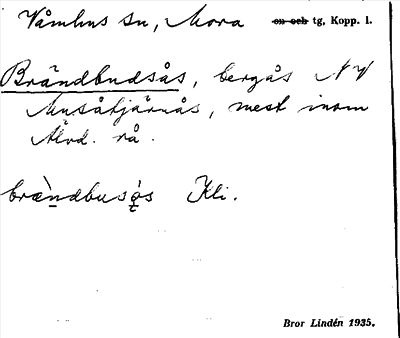 Våmhus sn, Mora on och tg, Kopp. l.
Brändbudsås, bergås NV
Musåtjärnås, mest inom
Älvd. rå.
brändbusås Kli.
Bror Lindén 1935.